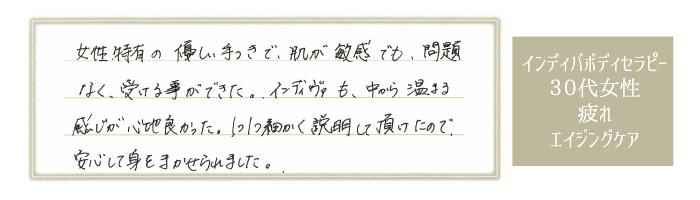 女性特有の優しい手つきで、肌が敏感でも、問題
なく、受ける事ができた。インディヴァも、中から温まる
感じが心地良かった。1つ1つ細かく説明して頂けたので、
安心して身をまかせられました。
インディバボディセラピー
30代女性
疲れ
エイジングケア